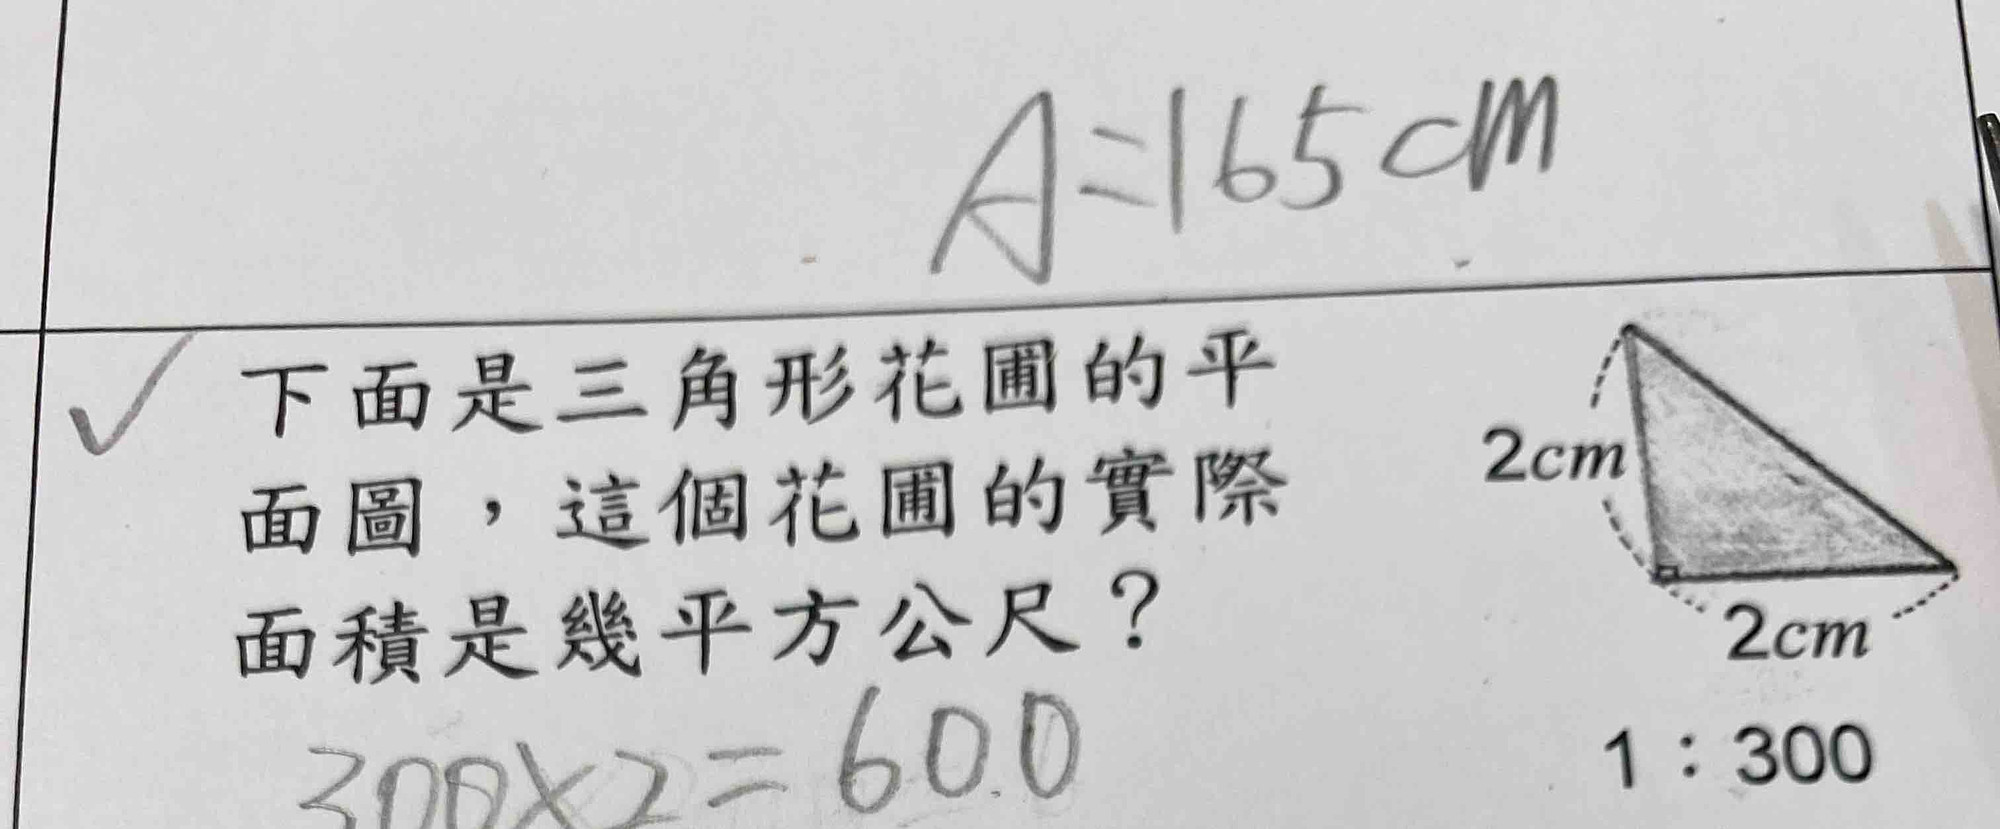 A=165cm
下面是三角形花圃的平
面圖，這個花圃的實際
面積是幾平方公尺？
2cm
2cm
1：300
300×2=600